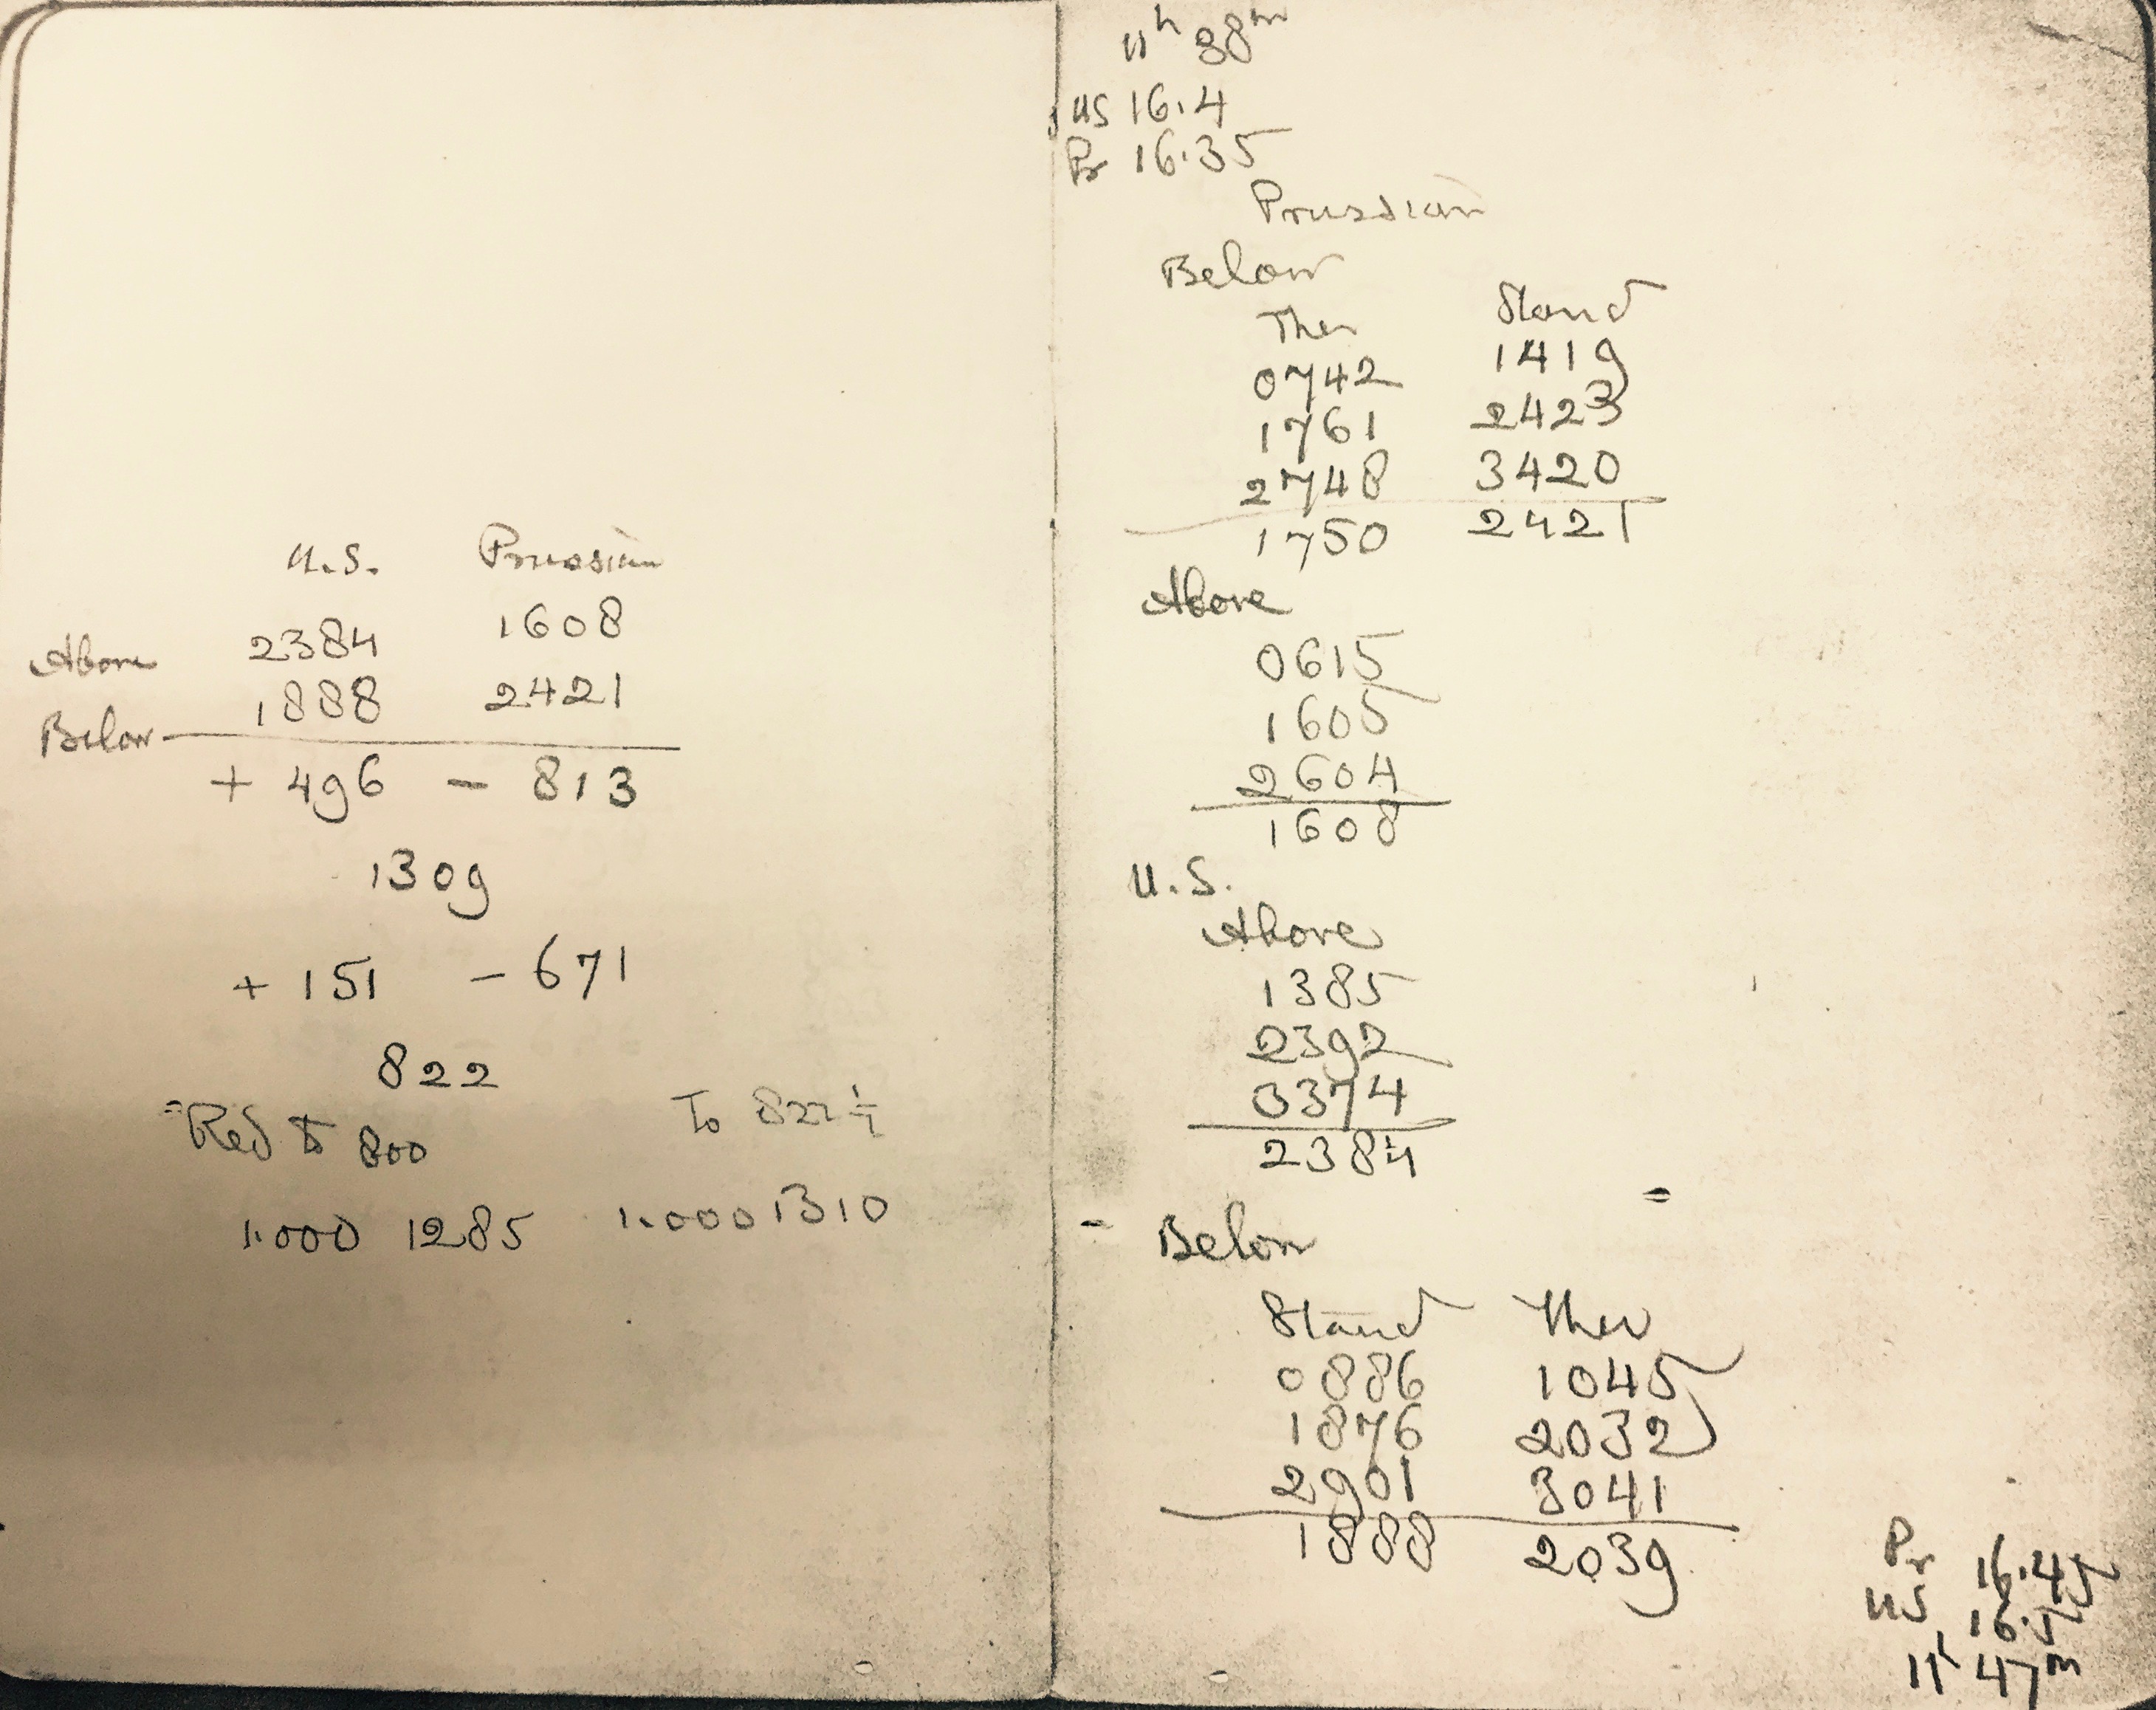 U.S. Prussian
Above 2384 1608
Below 1888 2421
+ 496 - 813
1309
+ 151 - 671
822
Red to 800 To 822
1.000 1285 1.0001310
11h 38m
US 16.4
Pr 16.35
Prussian
Below
Ther Stand
0742 1419
1761 2423
2748 3420
1750 2421
Above
0615
1605
2604
1608
U.S.
Above
1385
2392
3374
2384
Below
Stand Ther
0886 1045
1876 2032
2901 3041
1888 2039
Pr 16.45
US 16.
11h 47